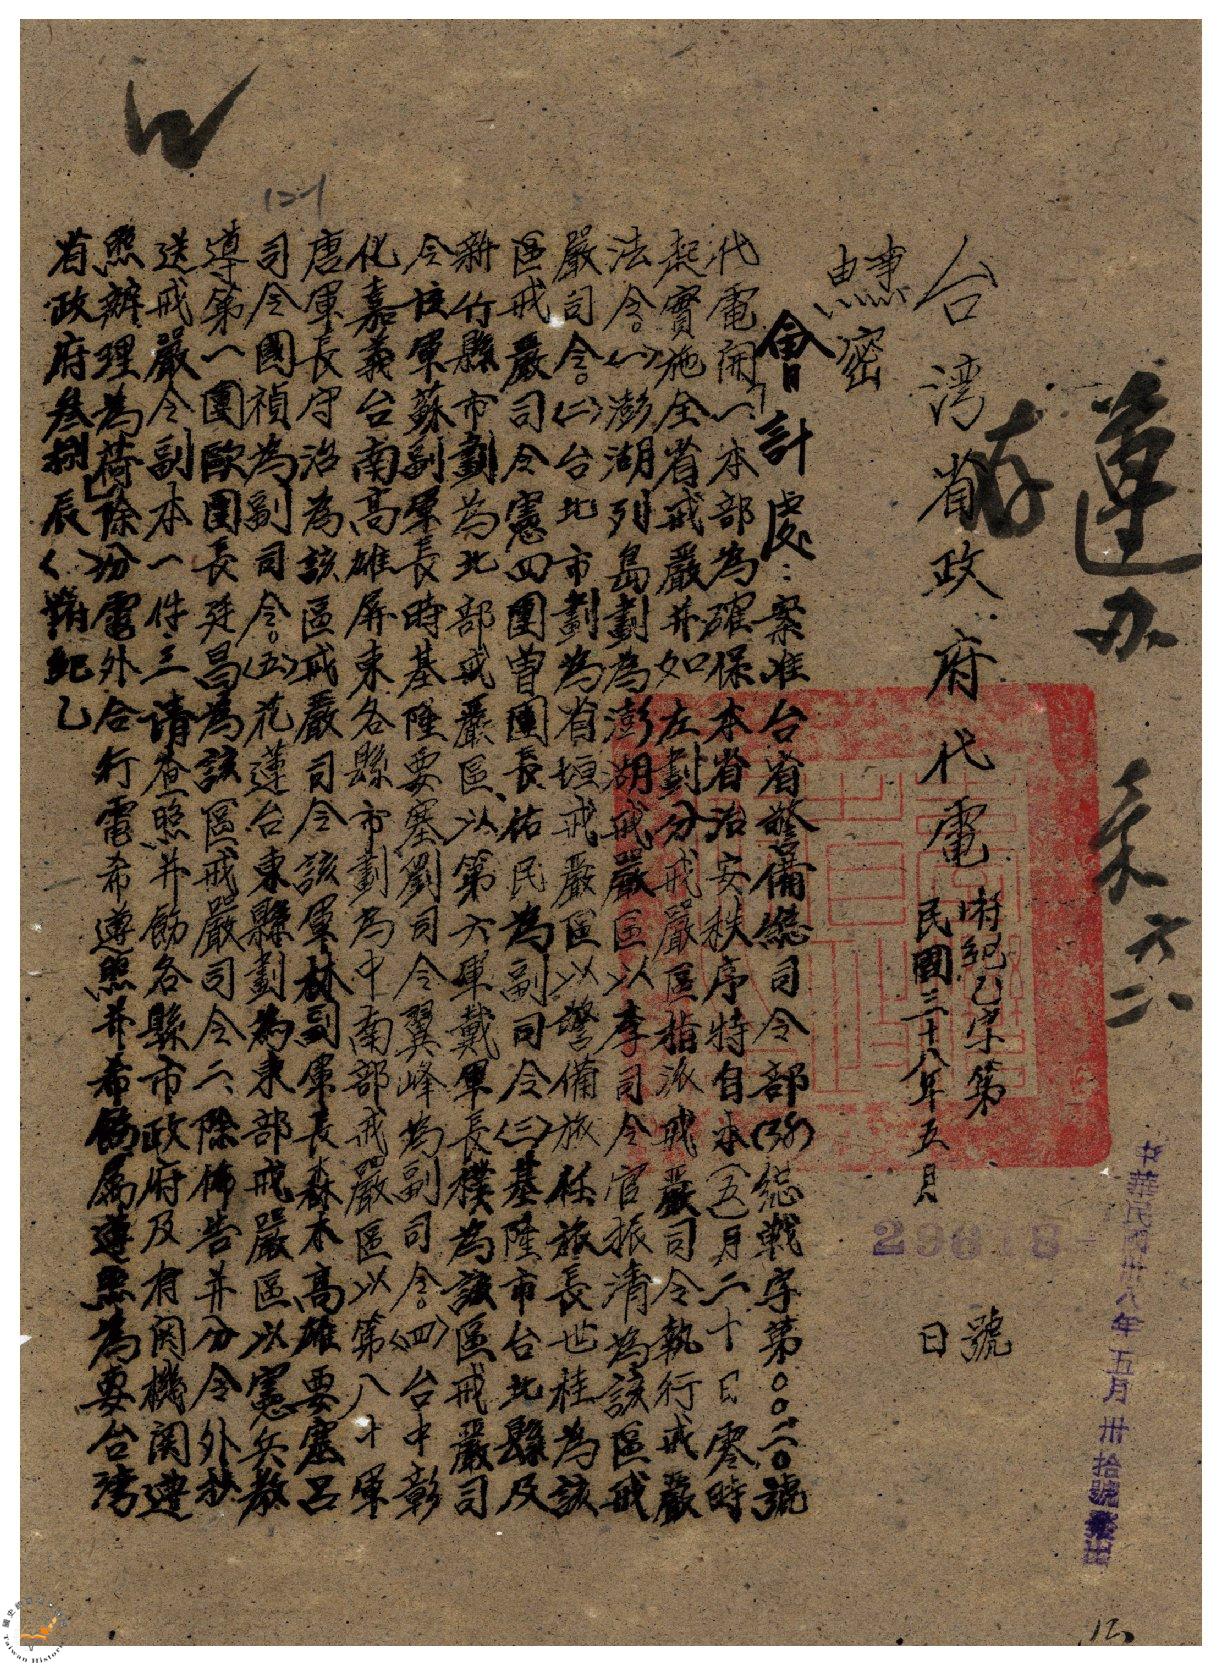 遵办
存
六二
台湾省政府代電
府紀乙字第 號
民國三十八年五月 日
29618
中華民國卅八年五月卅拾號發出
事
密
會計處：案准台省警備總司令部(弥)総戰字第〇〇二〇號
代電開「一、本部為確保本省治安秩序特自本(五)月二十日零時
起實施全省戒嚴并如左劃分戒嚴區指派戒嚴司令執行戒嚴
法令。(一)澎湖列島劃為澎湖戒嚴區以李司令官振清為該區戒
嚴司令。(二)台北市劃為省垣戒嚴區以警備旅任旅長世桂為該
區戒嚴司令憲四團曾團長佑民為副司令(三)基隆市台北縣及
新竹縣市劃為北部戒嚴區、以第六軍戴軍長樸為該區戒嚴司
令該軍蘇副軍長時基隆要塞劉司令翼峰為副司令。(四)台中彰
化嘉義台南高雄屏東各縣市劃為中南部戒嚴區以第八十軍
唐軍長守治為該區戒嚴司令該軍林副軍長森木、高雄要塞呂
司令國禎為副司令。(五)花蓮台東縣劃為東部戒嚴區以憲兵教
導第一團歐團長廷昌為該區戒嚴司令二、除佈告并分令外抄
送戒嚴令副本一件三、請查照并飭各縣市政府及有関機関遵
照辦理為荷」除分電外合行電希遵照并希飭屬遵照為要台湾
省政府叁捌辰()府紀乙
國史館
Taiwan Histor